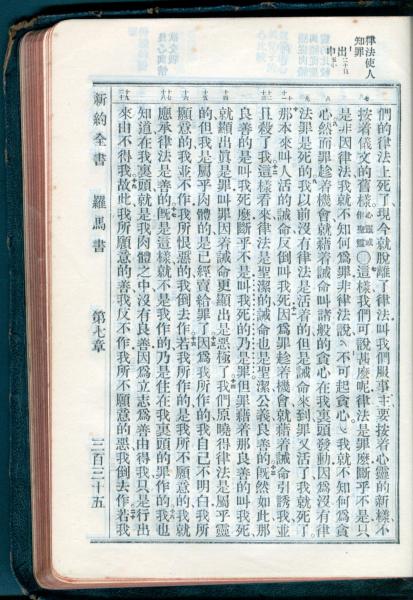 律法使人
知罪
們的律法上死了現今就脫離了律法叫我們服事主要按着心靈的新樣不
按着儀文的舊樣心靈或作聖靈○這樣我們可說甚麽呢律法是罪麽斷乎不是只
是非因律法我就不知何爲罪非律法說不可起貪心我就不知何爲貪
心然而罪趁着機會就藉着誡命叫諸般的貪心在我裏頭發動因爲沒有律
法罪是死的我以前沒有律法是活着的但是誡命來到罪又活了我就死了
那本來叫人活的誡命反倒叫我死因爲罪趁着機會就藉着誡命引誘我並
且殺了我這樣看來律法是聖潔的誡命也是聖潔公義良善的旣然如此那
良善的是叫我死麽斷乎不是叫我死的乃是罪但罪藉着那良善的叫我死
就顯出眞是罪叫罪因着誡命更顯出是惡極了我們原曉得律法是屬乎靈
的但我是屬乎肉體的是已經賣給罪了因爲我所作的我自己不明白我所
願意的我並不作我所恨惡的我倒去作若我所作的是我所不願意的我就
應承律法是善的旣是這樣就不是我作的乃是住在我裏頭的罪作的我也
知道在我裏頭就是我肉體之中沒有良善因爲立志爲善由得我只是行出
來由不得我故此我所願意的善我反不作我所不願意的惡我倒去作若我
新約全書 羅馬書 第七章 三百三十五